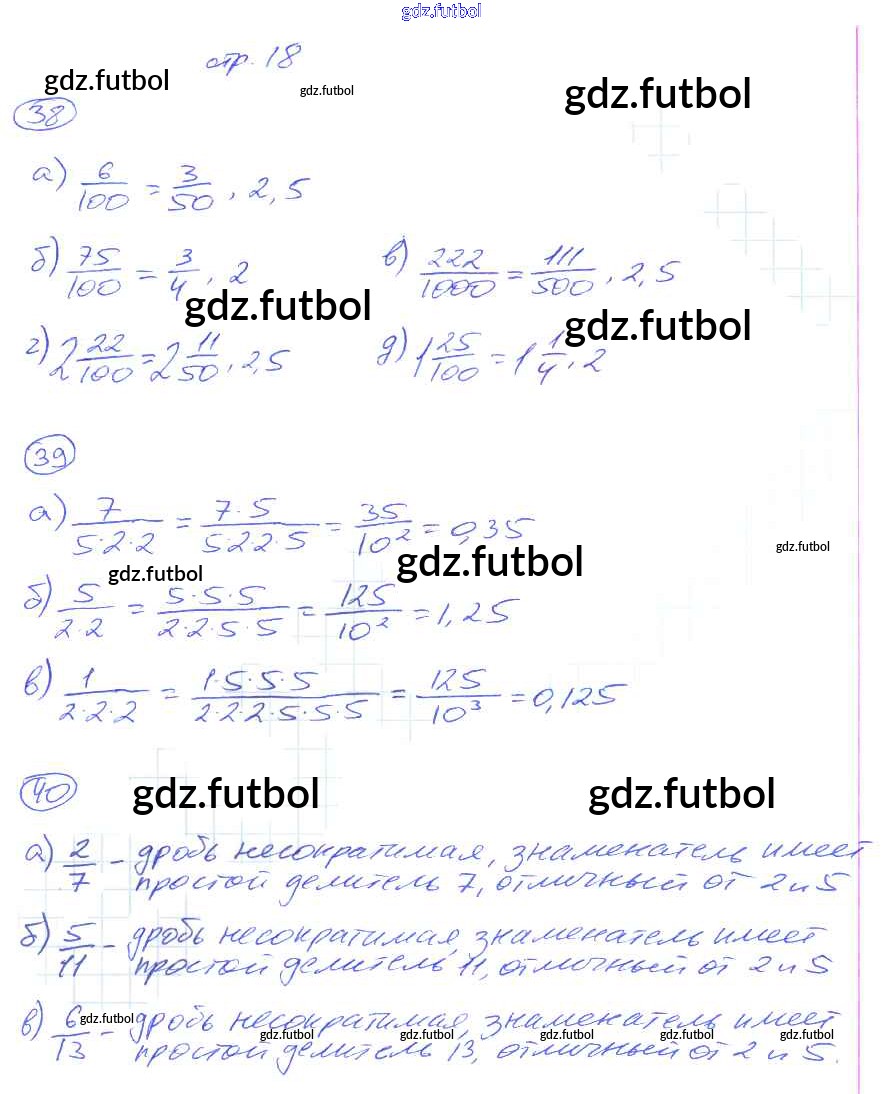 gdz.futbol
стр. 18
gdz.futbol gdz.futbol gdz.futbol
38
а) 6/100 = 3/50, 2, 5
б) 75/100 = 3/4, 2 в) 222/1000 = 111/500, 2, 5
gdz.futbol gdz.futbol
г) 2 22/100 = 2 11/50, 2, 5 д) 1 25/100 = 1 1/4, 2
39
а) 7/(5·2·2) = (7·5)/(5·2·2·5) = 35/10² = 0,35
gdz.futbol gdz.futbol gdz.futbol
б) 5/(2·2) = (5·5·5)/(2·2·5·5) = 125/10² = 1,25
в) 1/(2·2·2) = (1·5·5·5)/(2·2·2·5·5·5) = 125/10³ = 0,125
40
gdz.futbol gdz.futbol
а) 2/7 - дробь несократимая, знаменатель имеет
простой делитель 7, отличный от 2 и 5
б) 5/11 - дробь несократимая, знаменатель имеет
простой делитель 11, отличный от 2 и 5
в) 6/13 - дробь несократимая, знаменатель имеет
gdz.futbol gdz.futbol gdz.futbol gdz.futbol gdz.futbol gdz.futbol
простой делитель 13, отличный от 2 и 5.